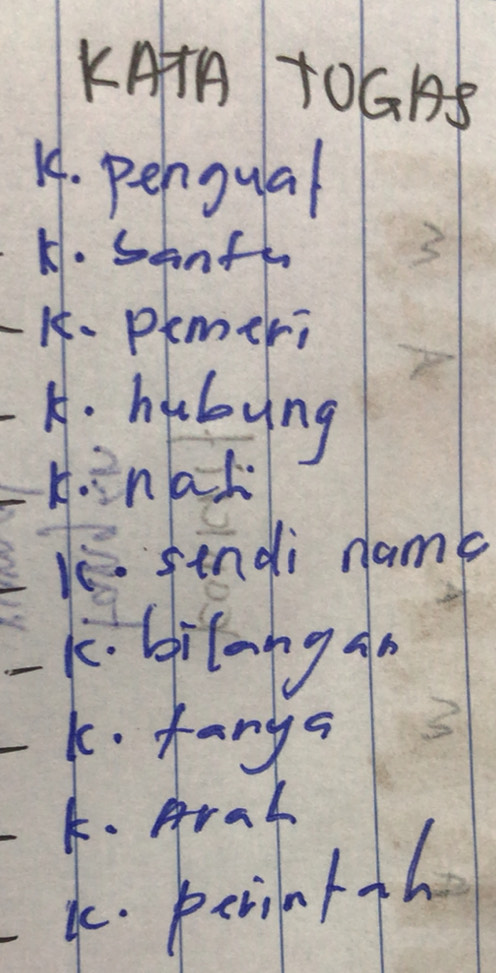 KATA TUGAS
K. penguat
K. bantu
K. pemeri
K. hubung
K. nafi
K. sendi nama
K. bilangan
K. tanya
K. Arah
K. perintah